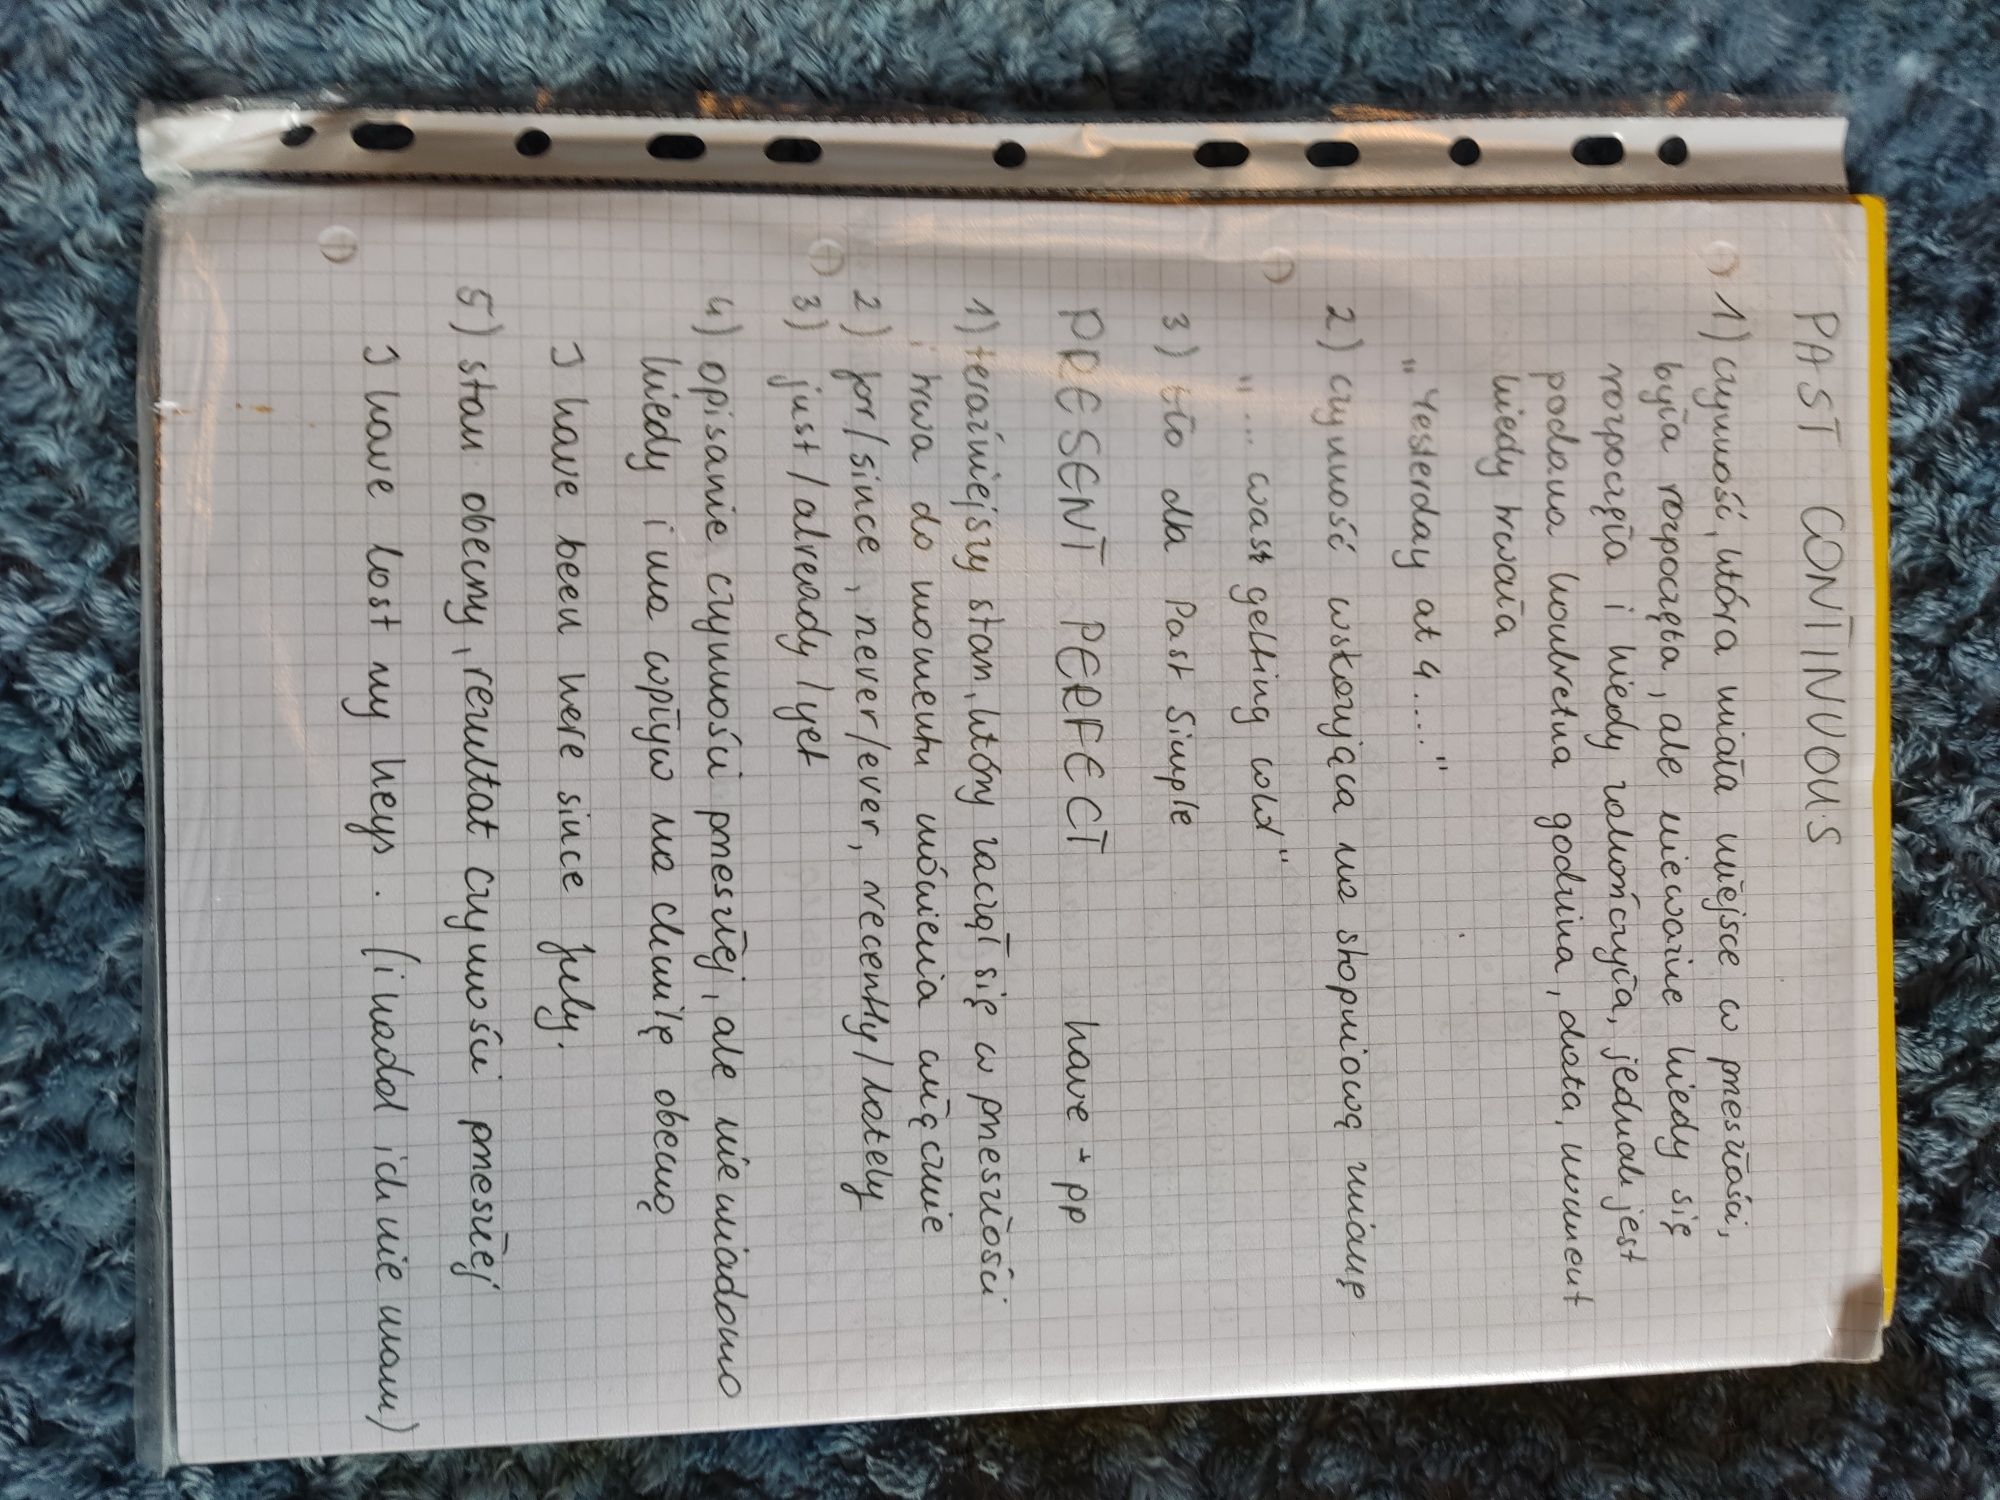 PAST CONTINUOUS
1) czynność, która miała miejsce w przeszłości,
była rozpoczęta, ale nieważne kiedy się
rozpoczęła i kiedy zakończyła, jednak jest
podana konkretna godzina, data, moment
kiedy trwała
"Yesterday at 4...."
2) czynność wskazująca na stopniową zmianę
"... was getting cold"
3) tło dla Past Simple
PRESENT PERFECT have + pp
1) teraźniejszy stan, który zaczął się w przeszłości
i trwa do momentu mówienia włącznie
2) for/since, never/ever, recently/lately
3) just/already/yet
4) opisanie czynności przeszłej, ale nie wiadomo
kiedy i ma wpływ na chwilę obecną
I have been here since July.
5) stan obecny, rezultat czynności przeszłej
I have lost my keys. (i nadal ich nie mam)